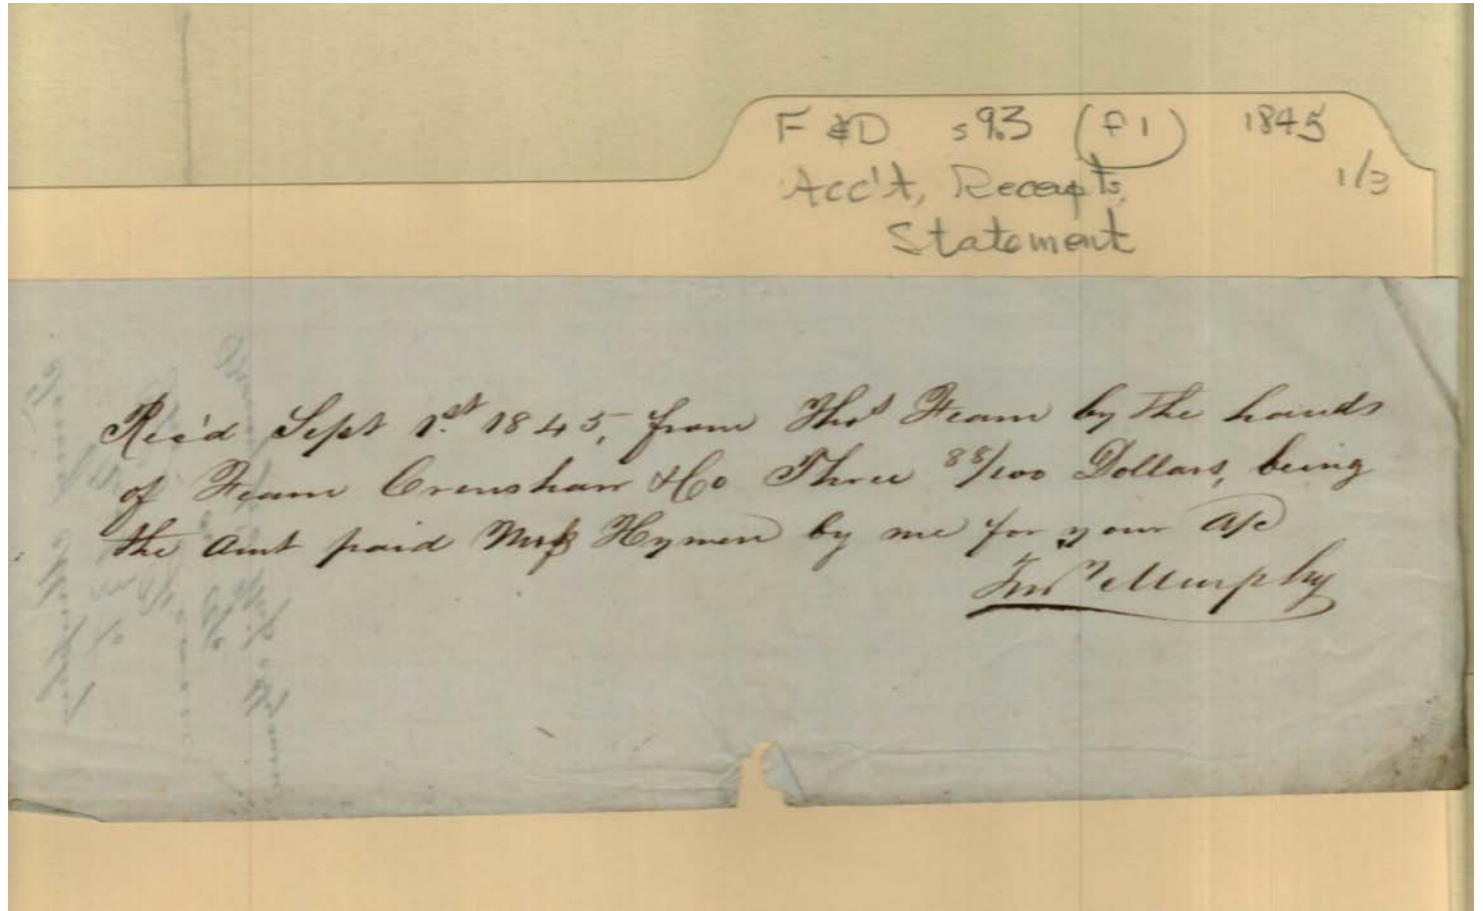 F & D s 9.3 (f 1) 1845
1/3
Acc't, Receipts,
Statement
Rec'd Sept 1st 1845, from Thos Fearn by the hands
of Fearn Crenshaw & Co Three 88/100 Dollars, being
the Amt paid Hymen by me for your a/c
Jno Murphy